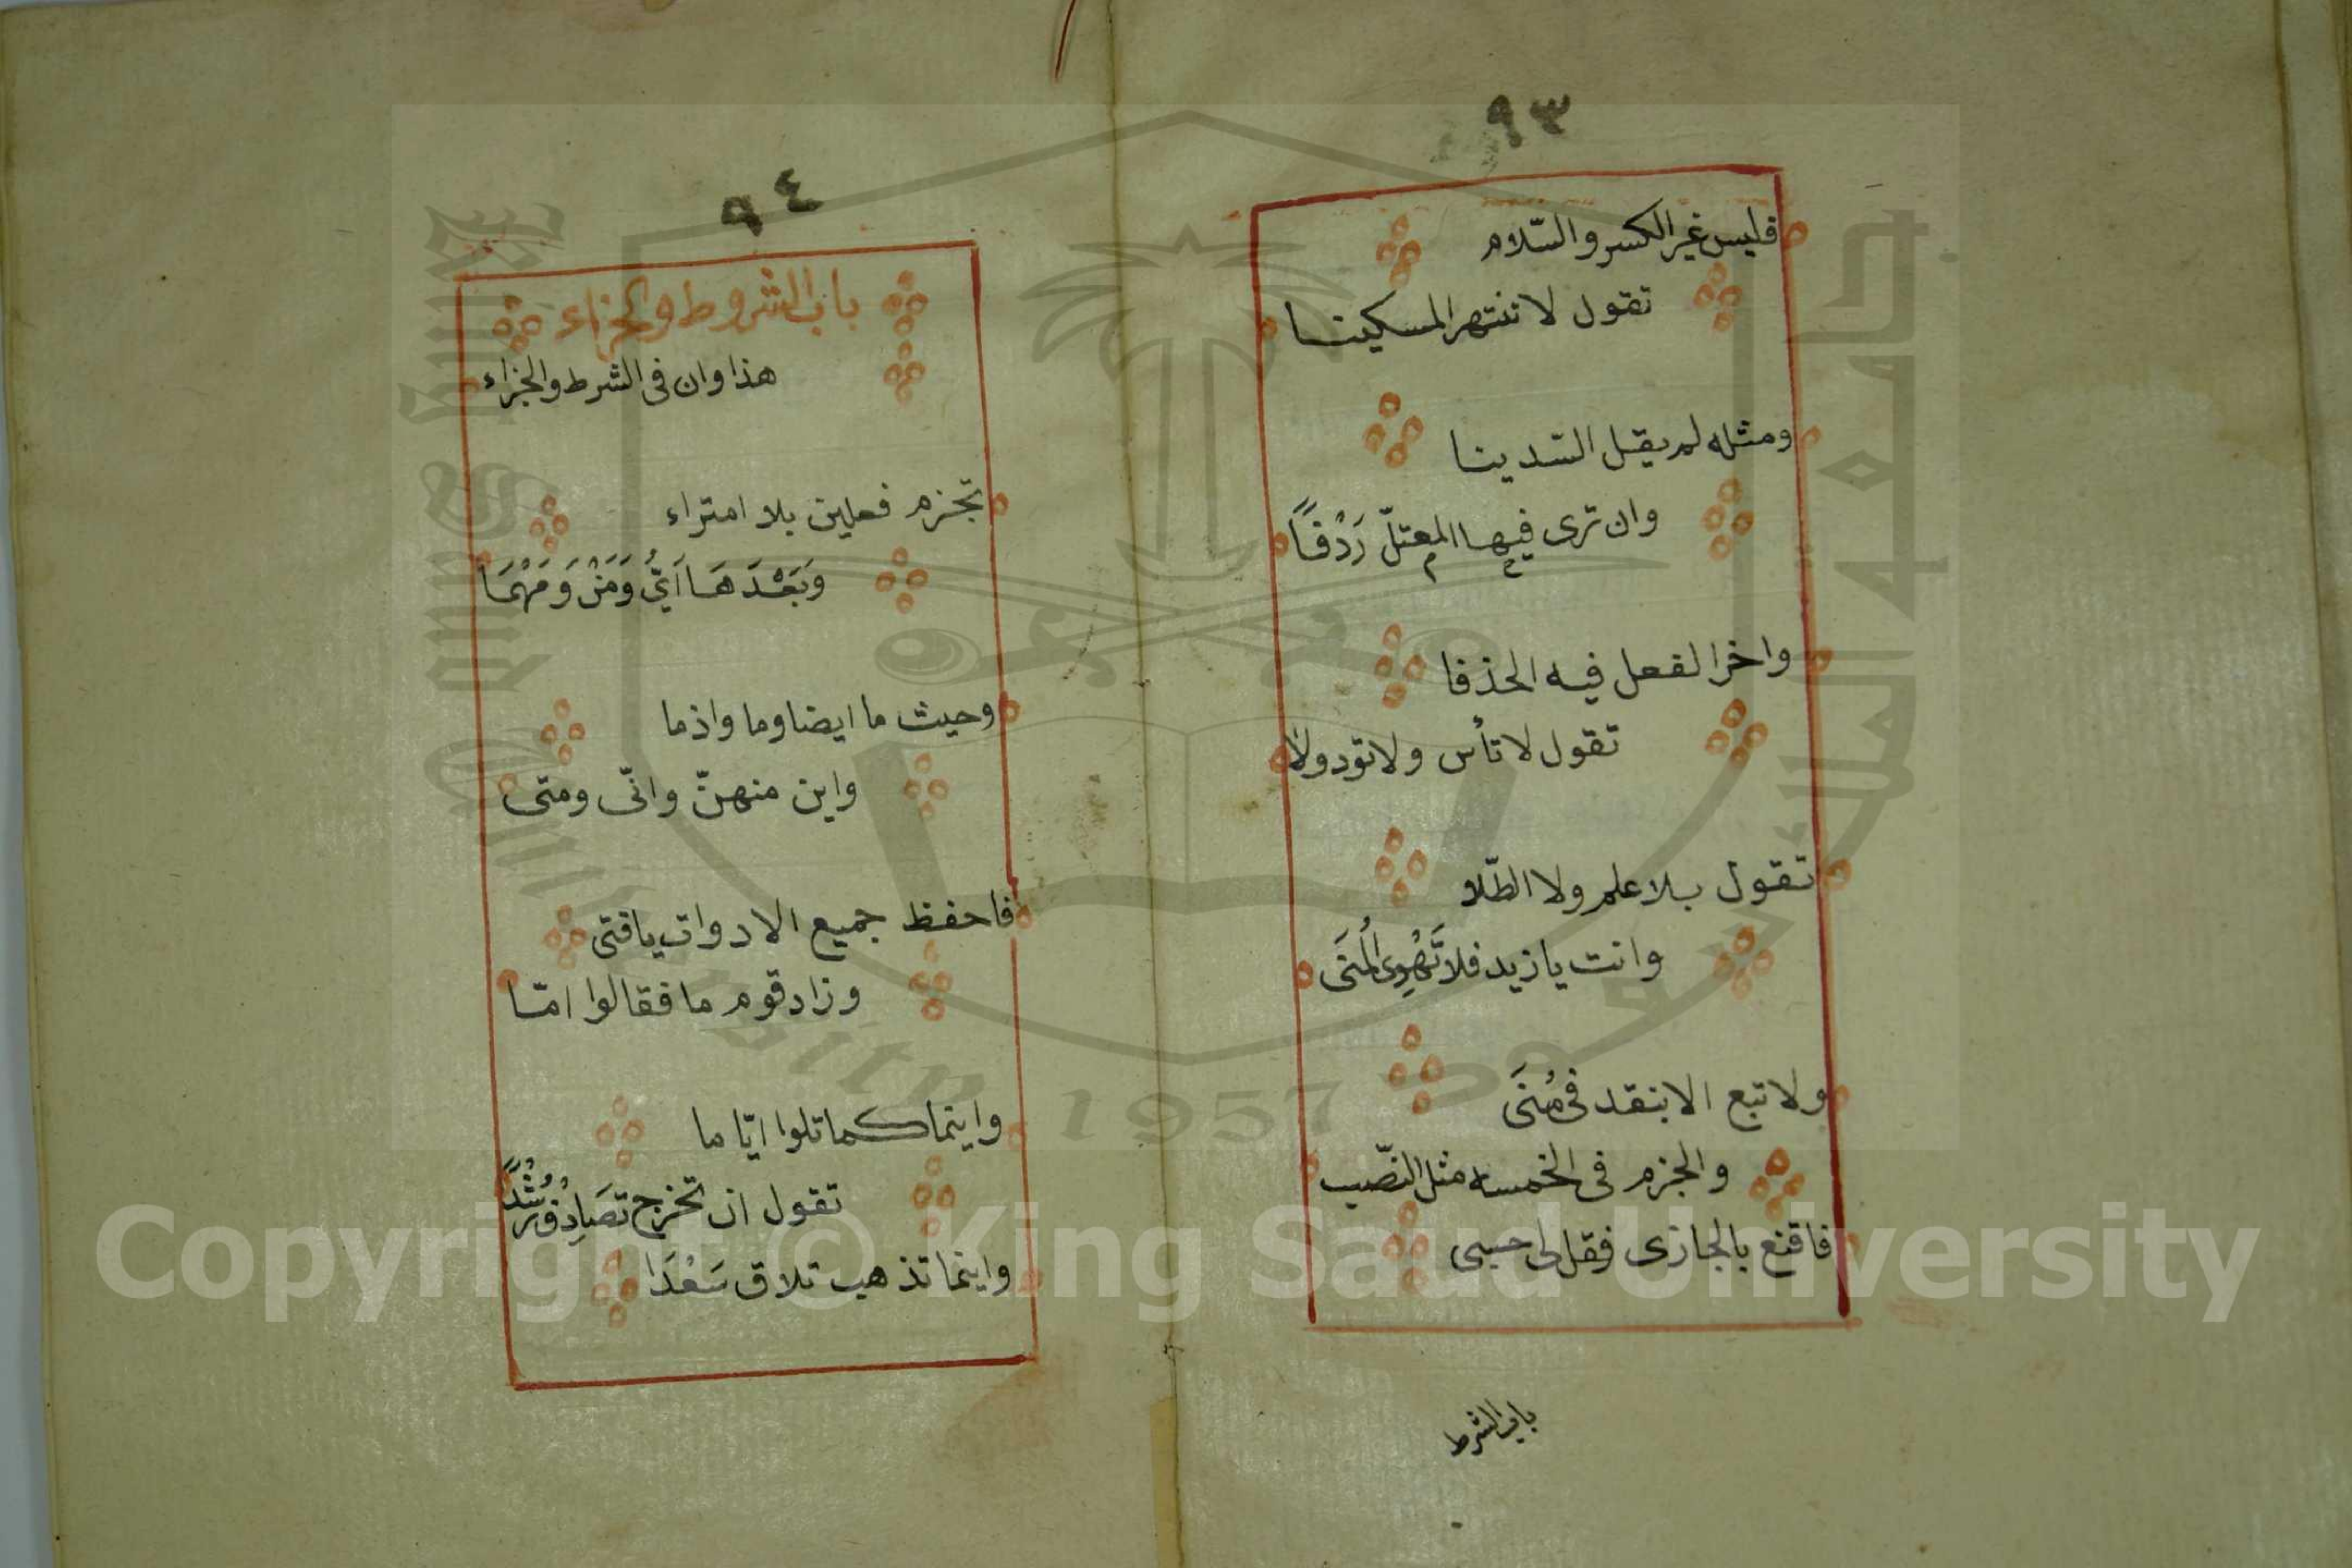 ٩٣
فليس غير الكسر والسّلام
تقول لا تنتهر المسكينا
ومثله لم يقل الّدينا
وان ترى فيها المعتلّ رَدْفًا
واخر الفعل فيه الحذفا
تقول لا تأس ولا تود ولا
تقول بلا علم ولا الطّلا
وانت يا زيد فلا تَهْوِى الْمُنَى
ولا تبع الا بنقد فى مُنَى
والجزم فى الخمسه مثل النّصب
فاقنع بالجازى فقل لى حسبى
باب الشرط
٩٤
باب الشروط والجزاء
هذا وان فى الشرط والجزاء
تجزم فعلين بلا امتراء
وَبَعْدَهَا اَىُّ وَمَنْ وَمَهْمَا
وحيث ما ايضا وما واذما
واين منهنّ وانّى ومتى
فاحفظ جميع الادوات يا فتى
وزاد قوم ما فقالوا امّا
واينما كما تلوا ايّا ما
تقول ان تخرج تصَادِفْ رُشْدًا
واينما تذهب تلاق سَعْدَا
Copyright © King Saud University
King Saud University
جامعة الملك سعود
1957